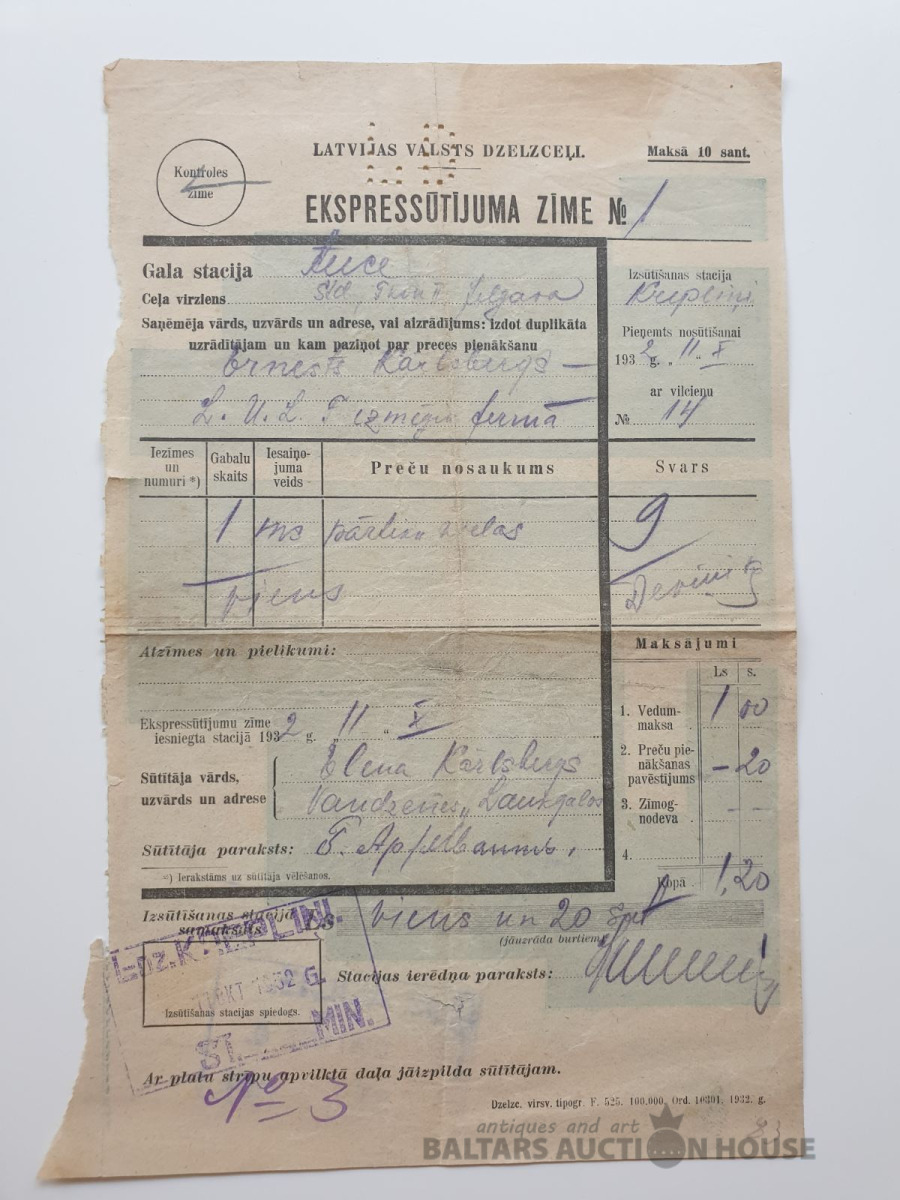 LATVIJAS VALSTS DZELZCEĻI.
Maksā 10 sant.
Kontroles
zīme
EKSPRESSŪTĪJUMA ZĪME № 1
Gala stacija
Ceļa virziens Jelgava
Saņēmēja vārds, uzvārds un adrese, vai aizrādījums: izdot duplikāta
uzrādītājam un kam paziņot par preces pienākšanu
Ernests Kārlsbergs —
L. U. L. F izmēģ. fermā
Izsūtīšanas stacija
Krepliņi
Pieņemts nosūtīšanai
1932 g. „ 11 “ X
ar vilcienu
№ 14
Iezīmes un numuri *)
Gabalu skaits
Iesaiņojuma veids
Preču nosaukums
Svars
1 ms pārtik. vielas 9
viens
Deviņi kg
Atzīmes un pielikumi:
Maksājumi
Ls s.
1. Vedummaksa 1 00
2. Preču pienākšanas pavēstījums – 20
3. Zīmognodeva – –
4.
Kopā 1,20
Ekspressūtījumu zīme
iesniegta stacijā 1932 g. „ 11 “ X
Sūtītāja vārds,
uzvārds un adrese
Elena Kārlsbergs
Vandzenes „Laukgalos
Sūtītāja paraksts: F. Apfelbaums,
*) Ierakstāms uz sūtītāja vēlēšanos.
Izsūtīšanas stacijā
samaksāts Ls viens un 20
(jāuzrāda burtiem)
Stacijas ierēdņa paraksts:
1932 G.
ST. MIN.
Izsūtīšanas stacijas spiedogs.
Ar platu strīpu apvilktā daļa jāizpilda sūtītājam.
№ 3
Dzelzc. virsv. tipogr. F. 525. 100.000. Ord. 10301. 1932. g.
antiques and art
BALTARS AUCTION HOUSE